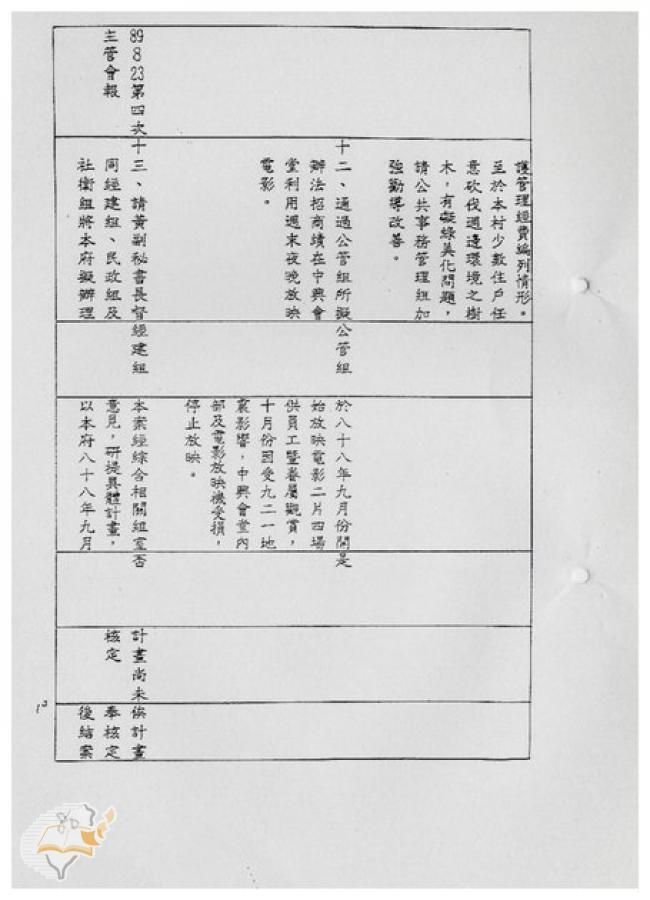 護管理經費編列情形。
至於本村少數住戶任
意砍伐週邊環境之樹
木，有礙綠美化問題，
請公共事務管理組加
強勸導改善。
十二、通過公管組所擬
辦法招商續在中興會
堂利用週末夜晚放映
電影。
公管組
於八十八年九月份開
始放映電影二片四場
供員工暨眷屬觀賞，
十月份因受九二一地
震影響，中興會堂內
部及電影放映機受損，
停止放映。
是
89
8
23第四次
主管會報
十三、請黃副秘書長督
同經建組、民政組及
社衛組將本府擬辦理
經建組
本案經綜合相關組室
意見，研提具體計畫，
以本府八十八年九月
否
計畫尚未
核定
俟計畫
奉核定
後結案
13
80